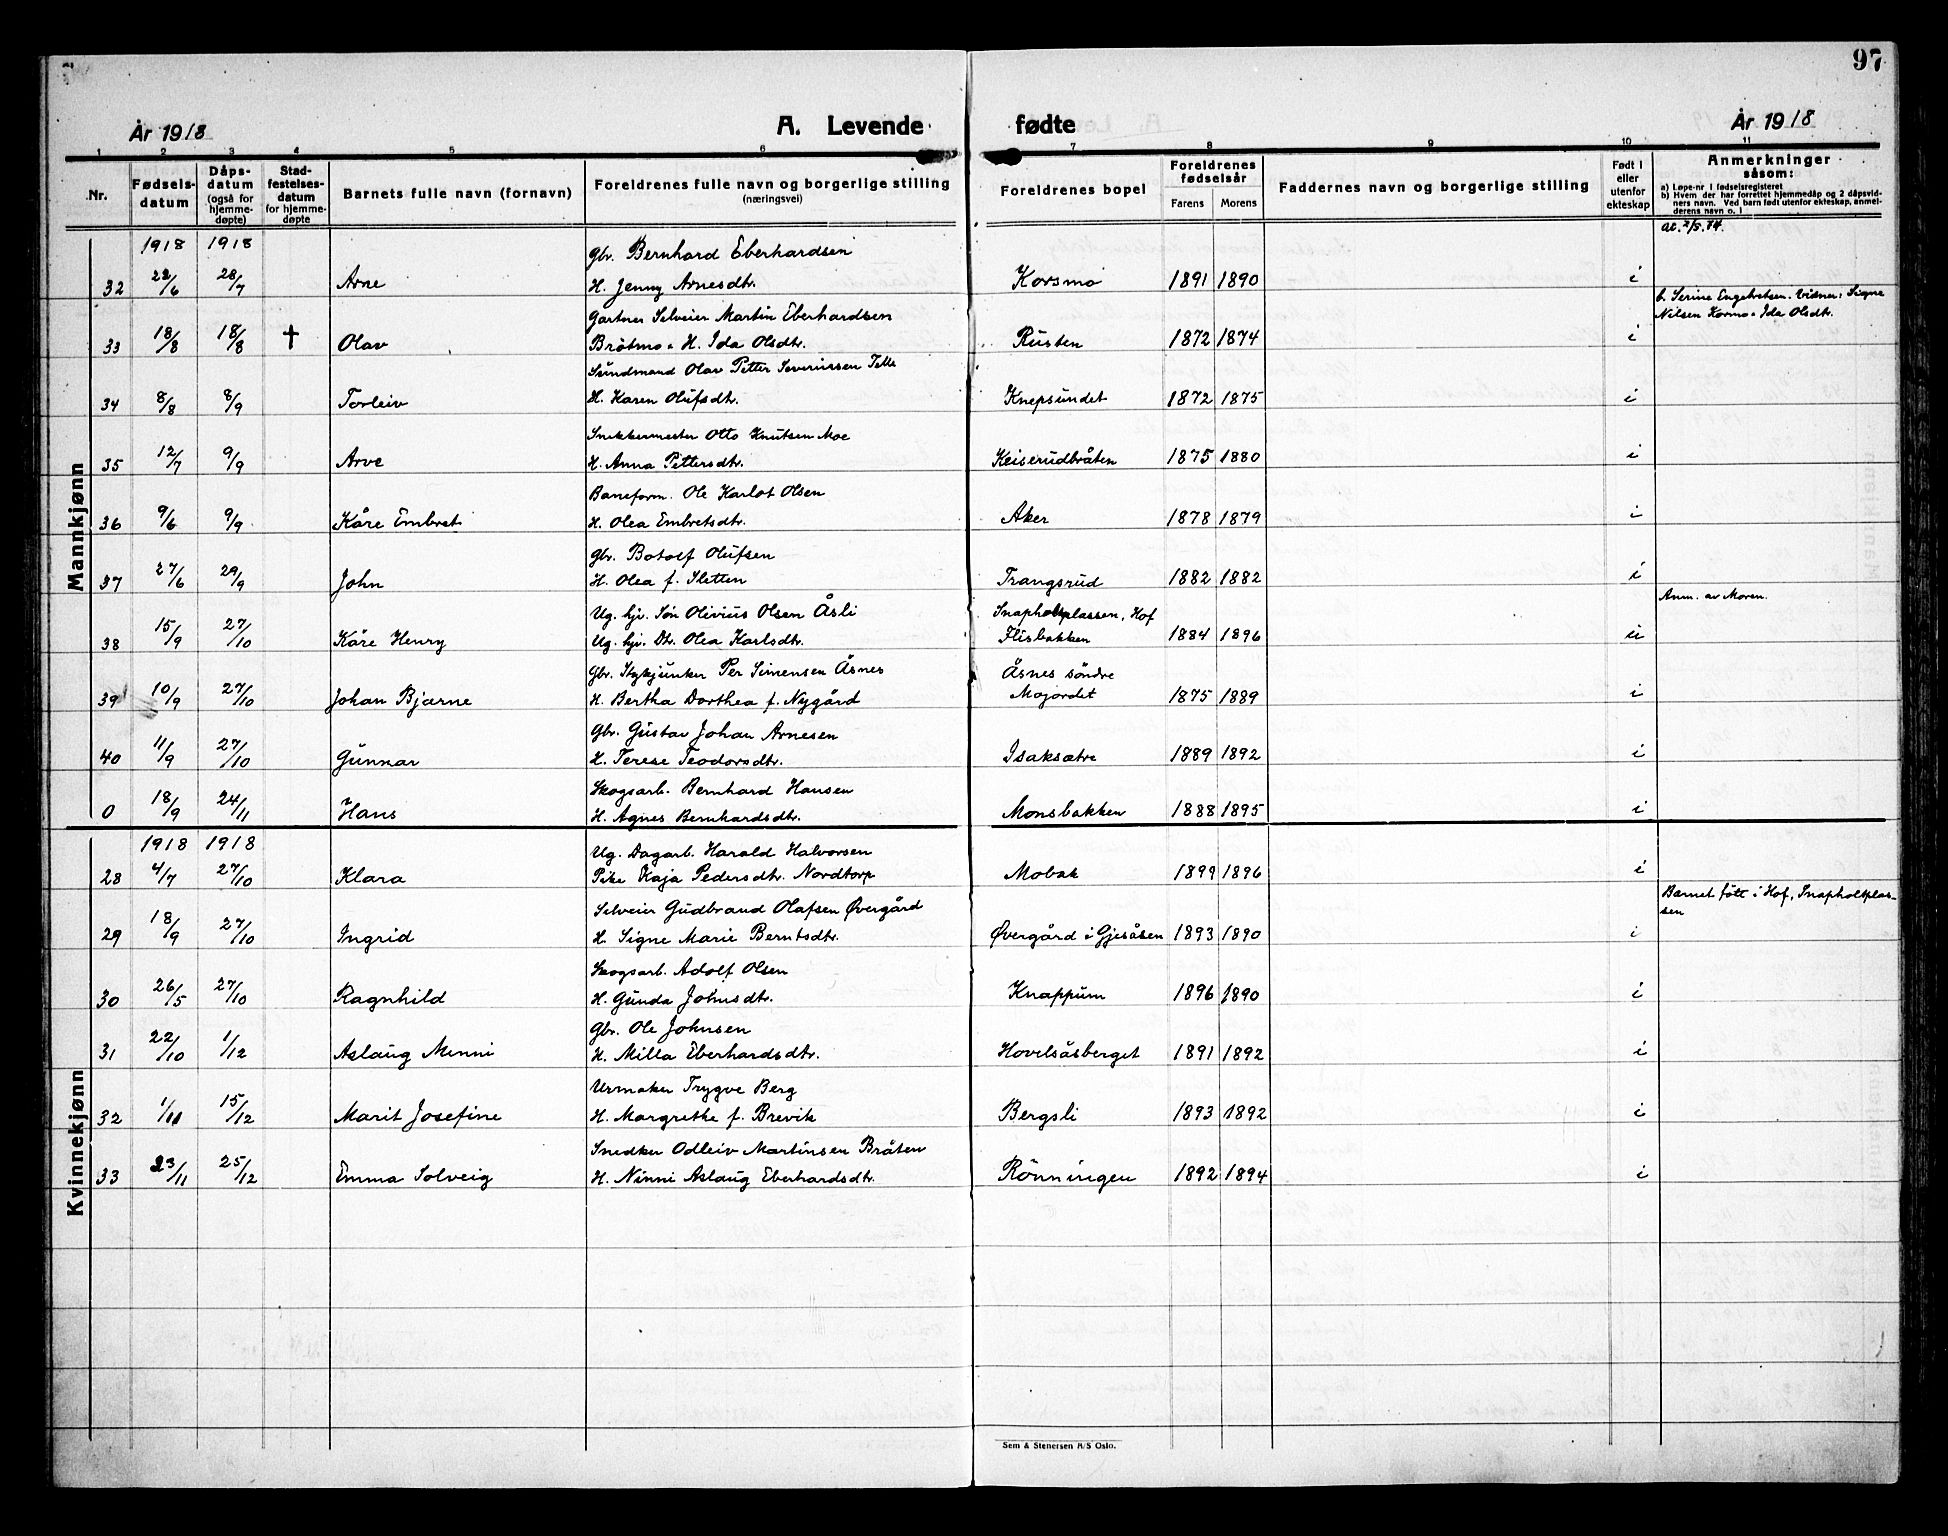 97
År 1918
A. Levende fødte
År 1918
1 2 3 4 5 6 7 8 9 10 11
Nr.
Fødsels-
datum
Dåps-
datum
(også for
hjemme-
døpte)
Stad-
festelses-
datum
for hjemme-
døpte
Barnets fulle navn (fornavn)
Foreldrenes fulle navn og borgerlige stilling
(næringsvei)
Foreldrenes bopel
Foreldrenes
fødselsår
Farens Morens
Faddernes navn og borgerlige stilling
Født i
eller
utenfor
ekteskap
Anmerkninger
såsom:
a) Løpe-nr i fødselsregisteret
b) Hvem der har forrettet hjemmedåp og 2 dåpsvid-
ners navn. Ved barn født utenfor ekteskap, anmel-
derens navn o. l
Mannkjønn
1918 1918 Gbr. Bernhard Eberhardsen at. 2/5.74.
32 22/6 28/7 Arne H. Jenny Arnesdtr. Korsmo 1891 1890 i
Gartner Selveier Martin Eberhardsen b. Serine Engebretsen. Vidner: Signe
33 18/8 18/8 † Olav Bråtmo & H. Ida Olsdtr. Rusten 1872 1874 i Nilsen Kormo & Ida Olsdtr.
Sundmand Olav Petter Severinssen
34 8/8 8/9 Torleiv H. Karen Olufsdtr. Knepsundet 1872 1875 i
Snekkermester Otto Knutsen Moe
35 12/7 9/9 Arve H. Anna Pettersdtr. Keiserudbråten 1875 1880 i
Baneform. Ole Karlot Olsen
36 9/6 9/9 Kåre Embret H. Olea Embretsdtr. Aker 1878 1879 i
Gbr. Botolf Olufsen
37 27/6 29/9 John H. Olea f. Sletten Trangsrud 1882 1882 i
Ug. hjv. Søn Olivius Olsen Åsli Snapholtplassen, Hof Anm. av Moren.
38 15/9 27/10 Kåre Henry Ug. hjv. Dtr. Olea Karlsdtr. Flisbakken 1884 1896 u
Gbr. Stykjunker Per Simensen Åsnes Åsnes söndre
39 10/9 27/10 Johan Bjarne H. Bertha Dorthea f. Nygård Mojordet 1875 1889 i
Gbr. Gustav Johan Arnesen
40 11/9 27/10 Gunnar H. Terese Teodorsdtr. Isaksætre 1889 1892 i
Skogsarb. Bernhard Hansen
0 18/9 24/11 Hans H. Agnes Bernhardsdtr. Monsbakken 1888 1895 i
Kvinnekjønn
1918 1918 Ug. Dagarb. Harald Halvorsen
28 4/7 27/10 Klara Pike Kaja Pedersdtr. Nordtorp Mobak 1899 1896 i
Selveier Gudbrand Olafsen Øvergård Barnet född i Hof, Snapholtplas-
sen
29 18/9 27/10 Ingrid H. Signe Marie Berntsdtr. Øvergård i Gjesåsen 1893 1890 i
Skogsarb. Adolf Olsen
30 26/5 27/10 Ragnhild H. Gunda Johnsdtr. Knappum 1896 1890 i
Gbr. Ole Johnsen
31 22/10 1/12 Aslaug Minni H. Milla Eberhardsdtr. Hovelsåsberget 1891 1892 i
Urmaker Trygve Berg
32 1/11 15/12 Marit Josefine H. Margrethe f. Brevik Bergsli 1893 1892 i
Snedker Odleiv Martinsen Bråten
33 23/11 25/12 Emma Solveig H. Ninni Aslaug Eberhardsdtr. Rönningen 1892 1894 i
Sem & Stenersen A/S Oslo.